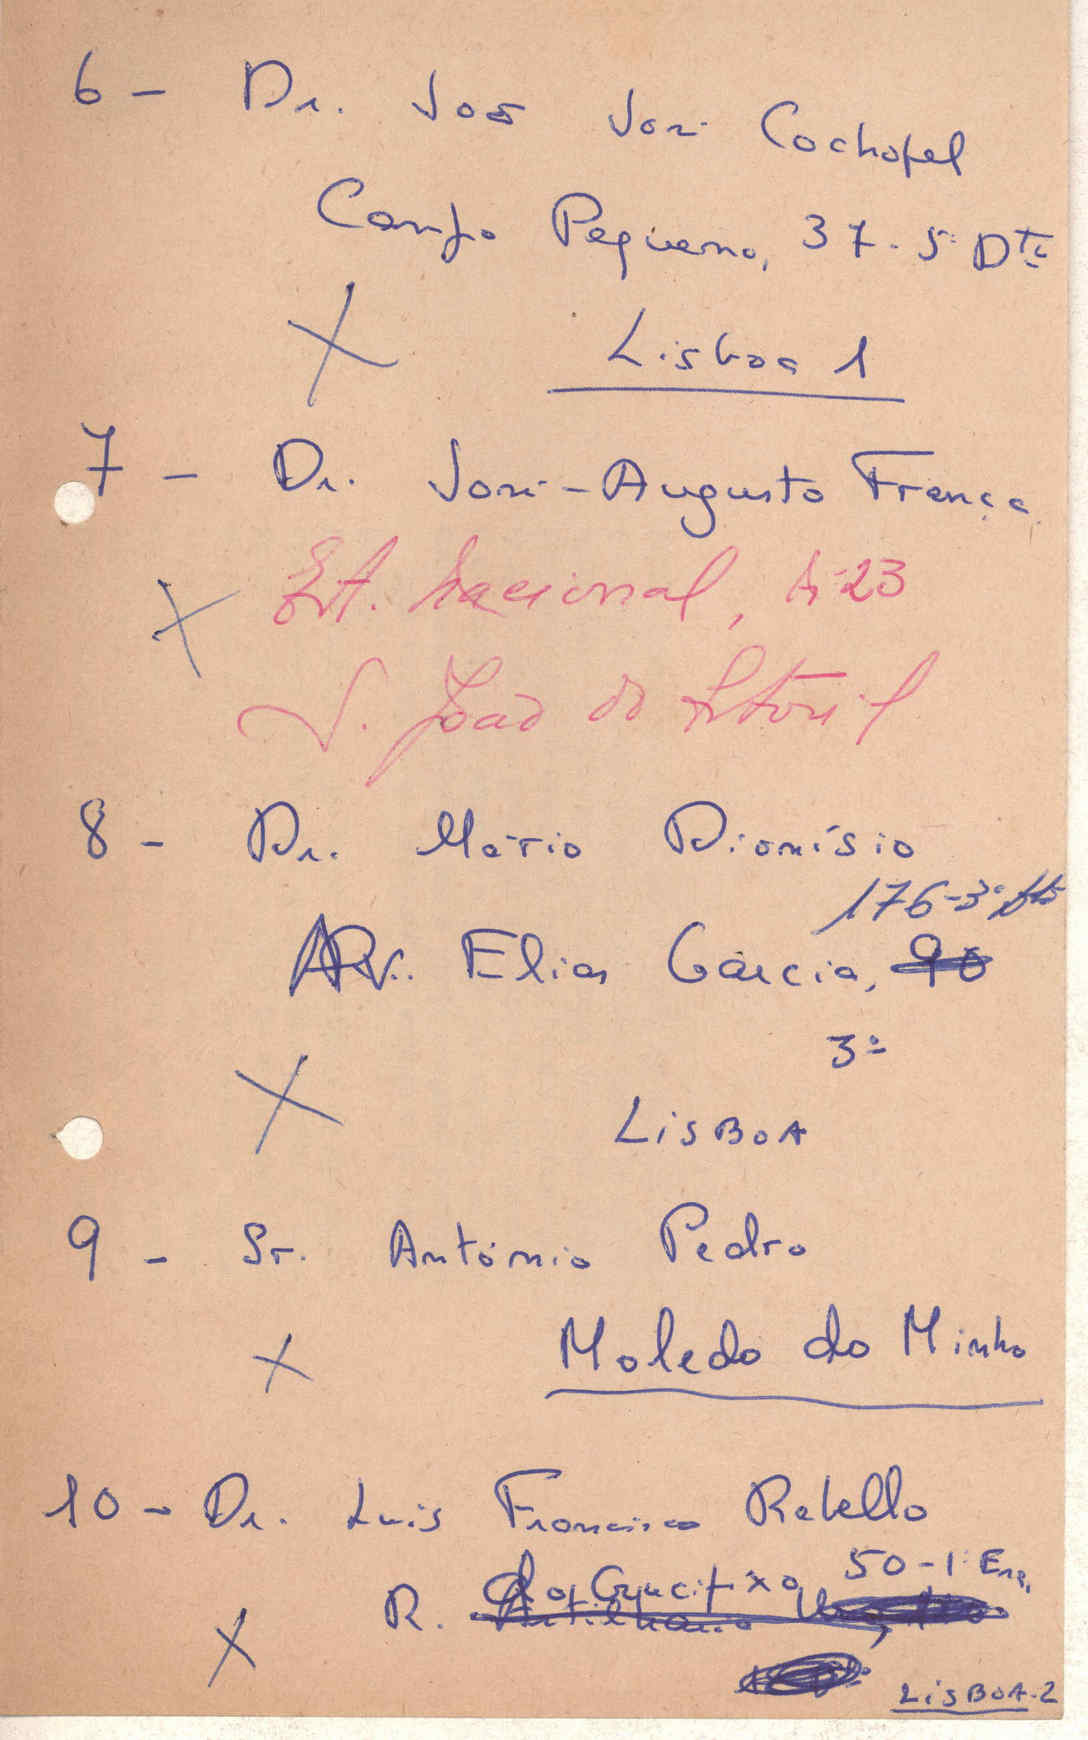 6 - Dr. João José Cochofel
Campo Pequeno, 37 - 5º Dtº
Lisboa 1
7 - Dr. José-Augusto França
Est. Nacional, 23
S. João do Estoril
8 - Dr. Mário Dionísio
176-3º dto
Av. Elias Garcia, 90
3º
LISBOA
9 - Sr. António Pedro
Moledo do Minho
10 - Dr. Luis Francisco Rebello
50-1º Esq.
R. do Crucifixo
LISBOA-2